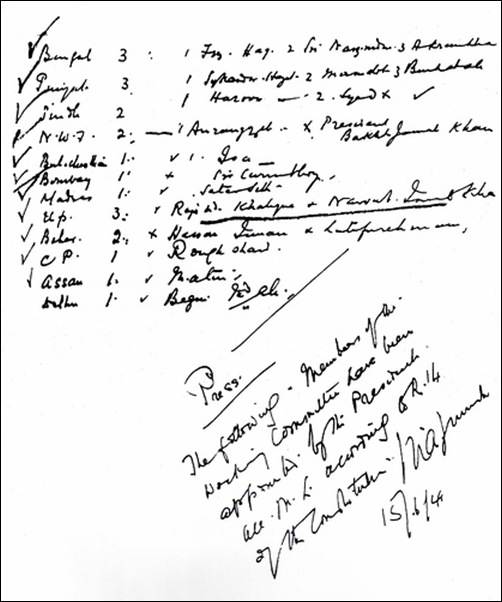 ✓ Bengal 3 : 1 Faz. Haq. 2 Sir Nazimdn 3 Akramkha
✓ Punjab. 3 1 Sykandar. Hayat. 2 Mamdot 3 Barkatali
✓ Sindh 2 1 Haroon — 2. Syed x ✓
N. W. F. 2. — 1 Aurangzeb. x President
Bakht Jamal Khan
✓ Baluchistan 1. ✓ 1. Isa —
✓ Bombay 1 x Sir Currimbhoy,
✓ Madras 1. ✓ Satar Seth
✓ U.p. 3. ✓ Raja Khaliq x Nawab. Ismail Kha
✓ Behar. 2. x Hassan Imam x Latifurehman,
✓ C P. 1 ✓ Rouf shah.
✓ Assam 1. ✓ Matin,
Delhi 1. ✓ Begum Md Ali.,
Press.
The following. Members of the.
Working Committee have been
appointed. by the President.
All. M. L. according to R. 14
of the Constitution. M A Jinnah
15/6/41